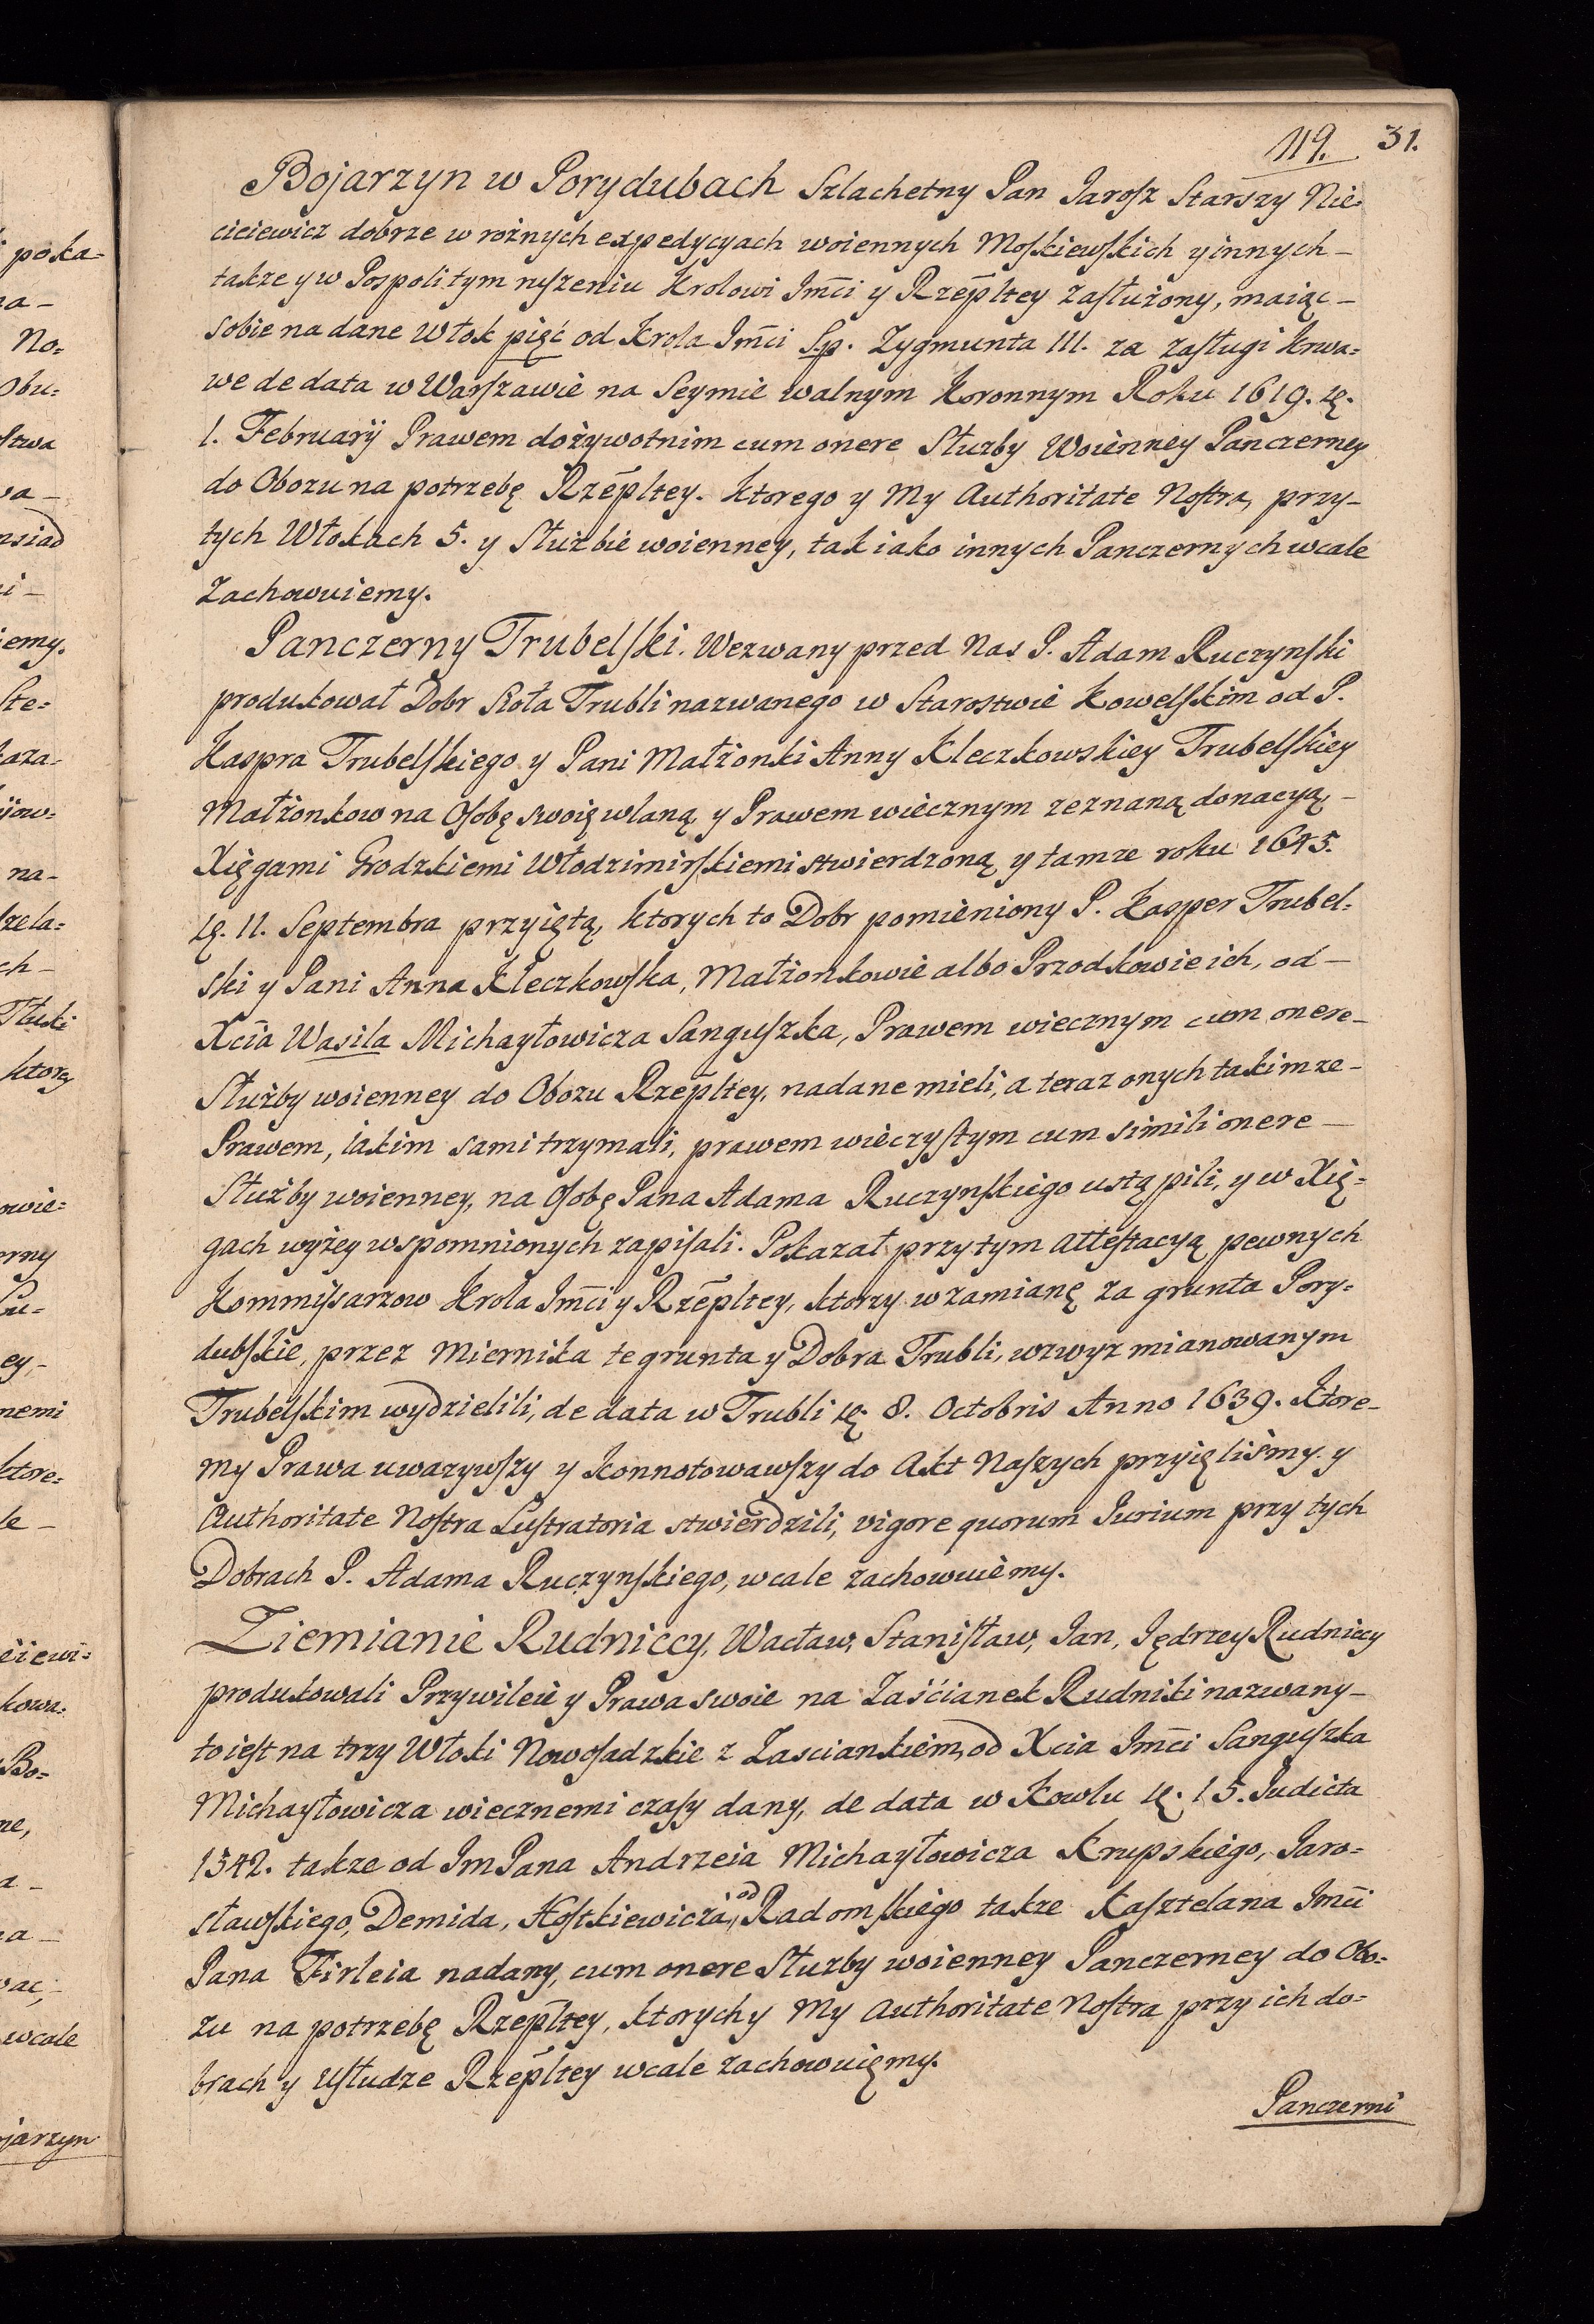 119. 31.
Bojarzyn w Porydubach Szlachetny Pan Jarosz Starszy Nie=
ciciewicz dobrze w rożnych expedycyach woiennych Moskiewskich y innych –
takze y w Pospolitym ruszeniu Krolowi Jmci y Rzepltey zasłużony, maiąc –
sobie nadane Włok pięć od Krola Jmci S.p. Zygmunta III. za zasługi Krwa=
we de data w Warszawie na Seymie walnym Koronnym Roku 1619.
1. Februarij Prawem dożywotnim cum onere Służby Woienney Panczerney
do Obozu na potrzebę Rzepltey. Ktorego y My Authoritate Nostra, przy–
tych Włokach 5. y Służbie woienney, tak iako innych Panczernych wcale
zachowuiemy.
Panczerny Trubelski. Wezwany przed Nas P. Adam Ruczynski
produkował Dobr Sioła Trubli nazwanego w Starostwie Kowelskim od P.
Kaspra Trubelskiego y Pani Małżonki Anny Kleczkowskiey Trubelskiey
Małżonkow na Osobę swoię wlaną y Prawem wiecznym zeznaną donacyą, –
Xięgami Grodzkiemi Włodzimirskiemi stwierdzoną y tamze roku 1645.
11. Septembra przyiętą, ktorych to Dobr pomieniony P. Kasper Trubel=
ski y Pani Anna Kleczkowska, Małżonkowie albo Przodkowie ich, od –
Xcia Wasila Michayłowicza Sanguszka, Prawem wiecznym cum onere –
Służby woienney do Obozu Rzepltey, nadane mieli, a teraz onych takimze –
Prawem, iakim sami trzymali, prawem wieczystym cum simili onere –
Służby woienney, na Osobę Pana Adama Ruczynskiego ustąpili, y w Xię=
gach wyżey wspomnionych zapisali. Pokazał przytym attestacyą pewnych
Kommissarzow Krola Jmci y Rzepltey, ktorzy w zamianę za grunta Pory=
dubskie, przez Miernika te grunta y Dobra Trubli, wzwyz mianowanym
Trubelskim wydzielili, de data w Trubli 8. Octobris Anno 1639. Ktore–
my Prawa uwazywszy y konnotowawszy do Akt Naszych przyięliśmy. y
Authoritate Nostra Lustratoria stwierdzili, vigore quorum Jurium przy tych
Dobrach P. Adama Ruczynskiego, wcale zachowuiemy.
Ziemianie Rudniccy, Wacław, Stanisław, Jan, Jędrzey Rudniccy
produkowali Przywileie y Prawa swoie na Zaścianek Rudniki nazwany –
to iest na trzy Włoki Nowosadzkie z Zasciankiem, od Xcia Jmci Sanguszka
Michayłowicza wiecznemi czasy dany, de data w Kowlu 15. Judicta
1542. takze od Jm Pana Andrzeia Michayłowicza Krupskiego, Jaro=
sławskiego, Demida, Hostkiewicza, od Radomskiego takze Kasztelana Jmci
Pana Firleia nadany, cum onere Służby woienney Panczerney do Obo=
zu na potrzebę Rzepltey, ktorych y My Authoritate Nostra przy ich do=
brach y Usłudze Rzepltey wcale zachowuięmy.
Panczerni